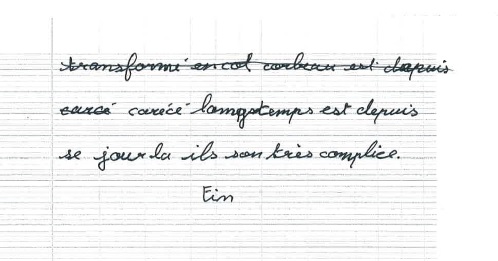 transformé en col corbeau est depuis
carcé carécé longstemps est depuis
se jour la ils son très complice.
Fin